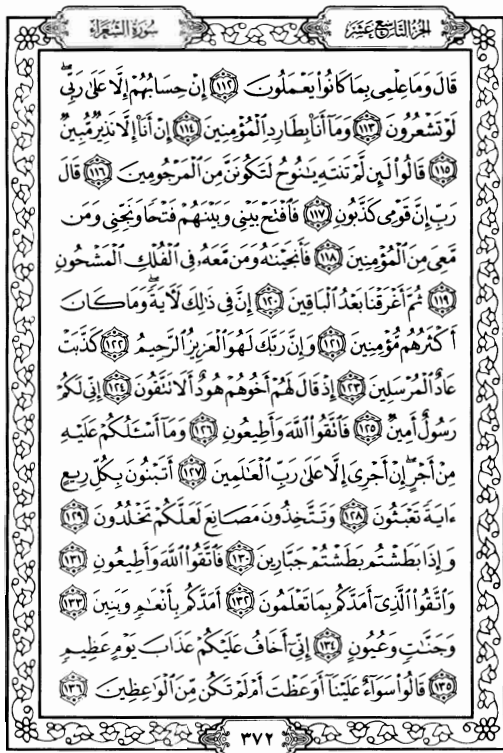 سُورَةُ الشُّعَرَاءِ
الجُزْءُ التَّاسِعَ عَشَرَ
قَالَ وَمَا عِلْمِى بِمَا كَانُوا۟ يَعْمَلُونَ ١١٢ إِنْ حِسَابُهُمْ إِلَّا عَلَىٰ رَبِّى ۖ
لَوْ تَشْعُرُونَ ١١٣ وَمَآ أَنَا۠ بِطَارِدِ ٱلْمُؤْمِنِينَ ١١٤ إِنْ أَنَا۠ إِلَّا نَذِيرٌ مُّبِينٌ
١١٥ قَالُوا۟ لَئِن لَّمْ تَنتَهِ يَٰنُوحُ لَتَكُونَنَّ مِنَ ٱلْمَرْجُومِينَ ١١٦ قَالَ
رَبِّ إِنَّ قَوْمِى كَذَّبُونِ ١١٧ فَٱفْتَحْ بَيْنِى وَبَيْنَهُمْ فَتْحًا وَنَجِّنِى وَمَن
مَّعِىَ مِنَ ٱلْمُؤْمِنِينَ ١١٨ فَأَنجَيْنَٰهُ وَمَن مَّعَهُۥ فِى ٱلْفُلْكِ ٱلْمَشْحُونِ
١١٩ ثُمَّ أَغْرَقْنَا بَعْدُ ٱلْبَاقِينَ ١٢٠ إِنَّ فِى ذَٰلِكَ لَءَايَةً ۖ وَمَا كَانَ
أَكْثَرُهُم مُّؤْمِنِينَ ١٢١ وَإِنَّ رَبَّكَ لَهُوَ ٱلْعَزِيزُ ٱلرَّحِيمُ ١٢٢ كَذَّبَتْ
عَادٌ ٱلْمُرْسَلِينَ ١٢٣ إِذْ قَالَ لَهُمْ أَخُوهُمْ هُودٌ أَلَا تَتَّقُونَ ١٢٤ إِنِّى لَكُمْ
رَسُولٌ أَمِينٌ ١٢٥ فَٱتَّقُوا۟ ٱللَّهَ وَأَطِيعُونِ ١٢٦ وَمَآ أَسْـَٔلُكُمْ عَلَيْهِ
مِنْ أَجْرٍ ۖ إِنْ أَجْرِىَ إِلَّا عَلَىٰ رَبِّ ٱلْعَٰلَمِينَ ١٢٧ أَتَبْنُونَ بِكُلِّ رِيعٍ
ءَايَةً تَعْبَثُونَ ١٢٨ وَتَتَّخِذُونَ مَصَانِعَ لَعَلَّكُمْ تَخْلُدُونَ ١٢٩
وَإِذَا بَطَشْتُم بَطَشْتُمْ جَبَّارِينَ ١٣٠ فَٱتَّقُوا۟ ٱللَّهَ وَأَطِيعُونِ ١٣١
وَٱتَّقُوا۟ ٱلَّذِىٓ أَمَدَّكُم بِمَا تَعْلَمُونَ ١٣٢ أَمَدَّكُم بِأَنْعَٰمٍ وَبَنِينَ ١٣٣
وَجَنَّٰتٍ وَعُيُونٍ ١٣٤ إِنِّىٓ أَخَافُ عَلَيْكُمْ عَذَابَ يَوْمٍ عَظِيمٍ
١٣٥ قَالُوا۟ سَوَآءٌ عَلَيْنَآ أَوَعَظْتَ أَمْ لَمْ تَكُن مِّنَ ٱلْوَٰعِظِينَ ١٣٦
٣٧٢